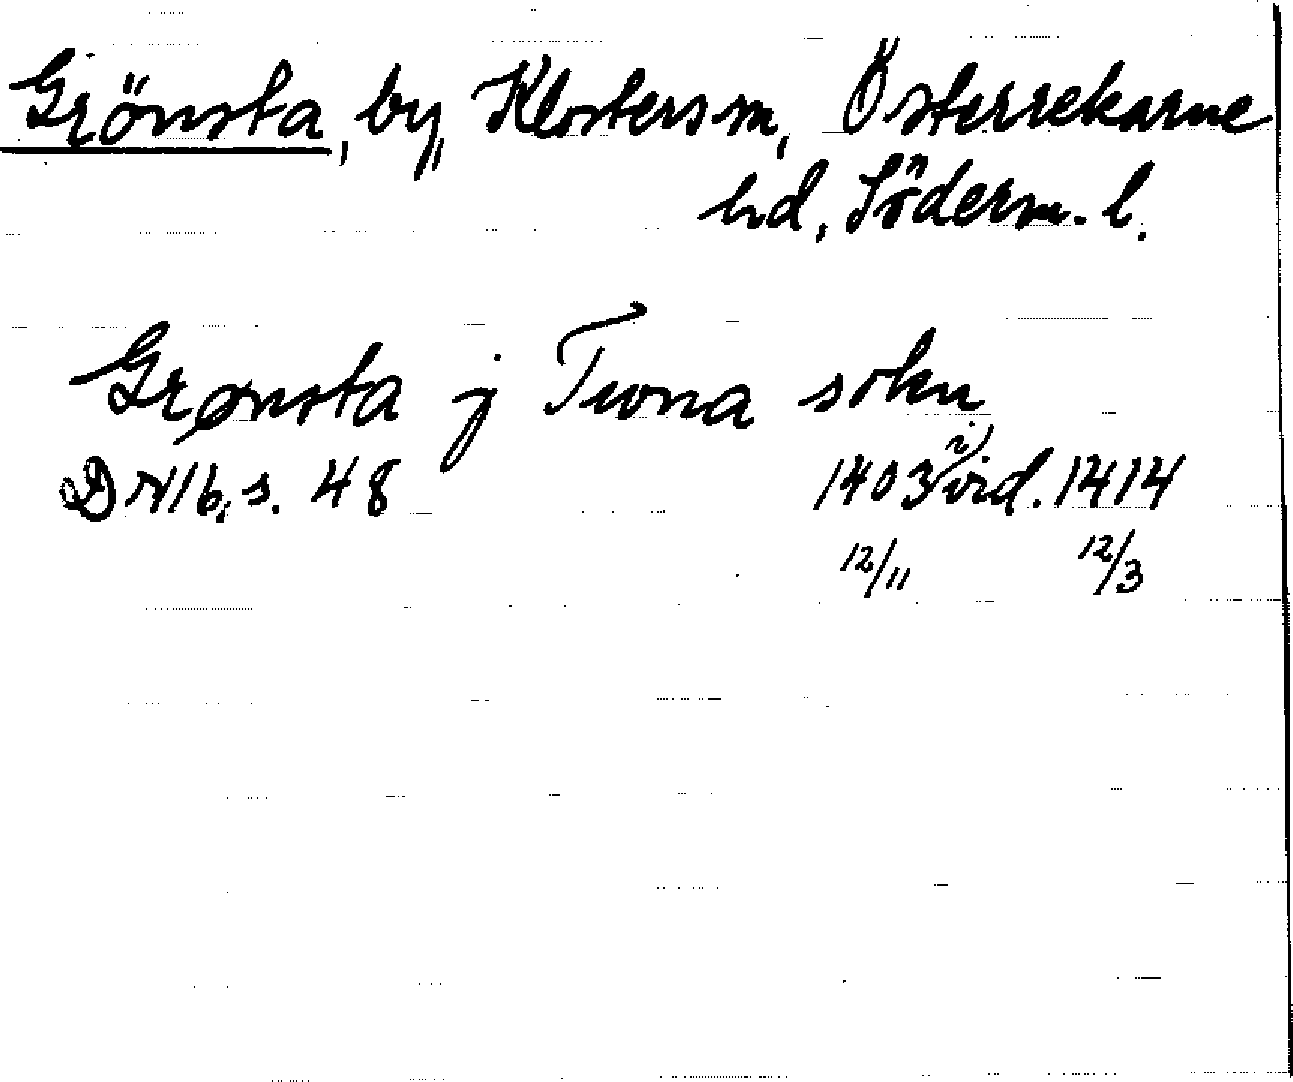 Grönsta, by, Klosters sn, Österrekarne
hd, Söderm. l.
Grønsta j Twna sokn
D N 16, s. 48 1403 i vid. 1414
12/11 12/3